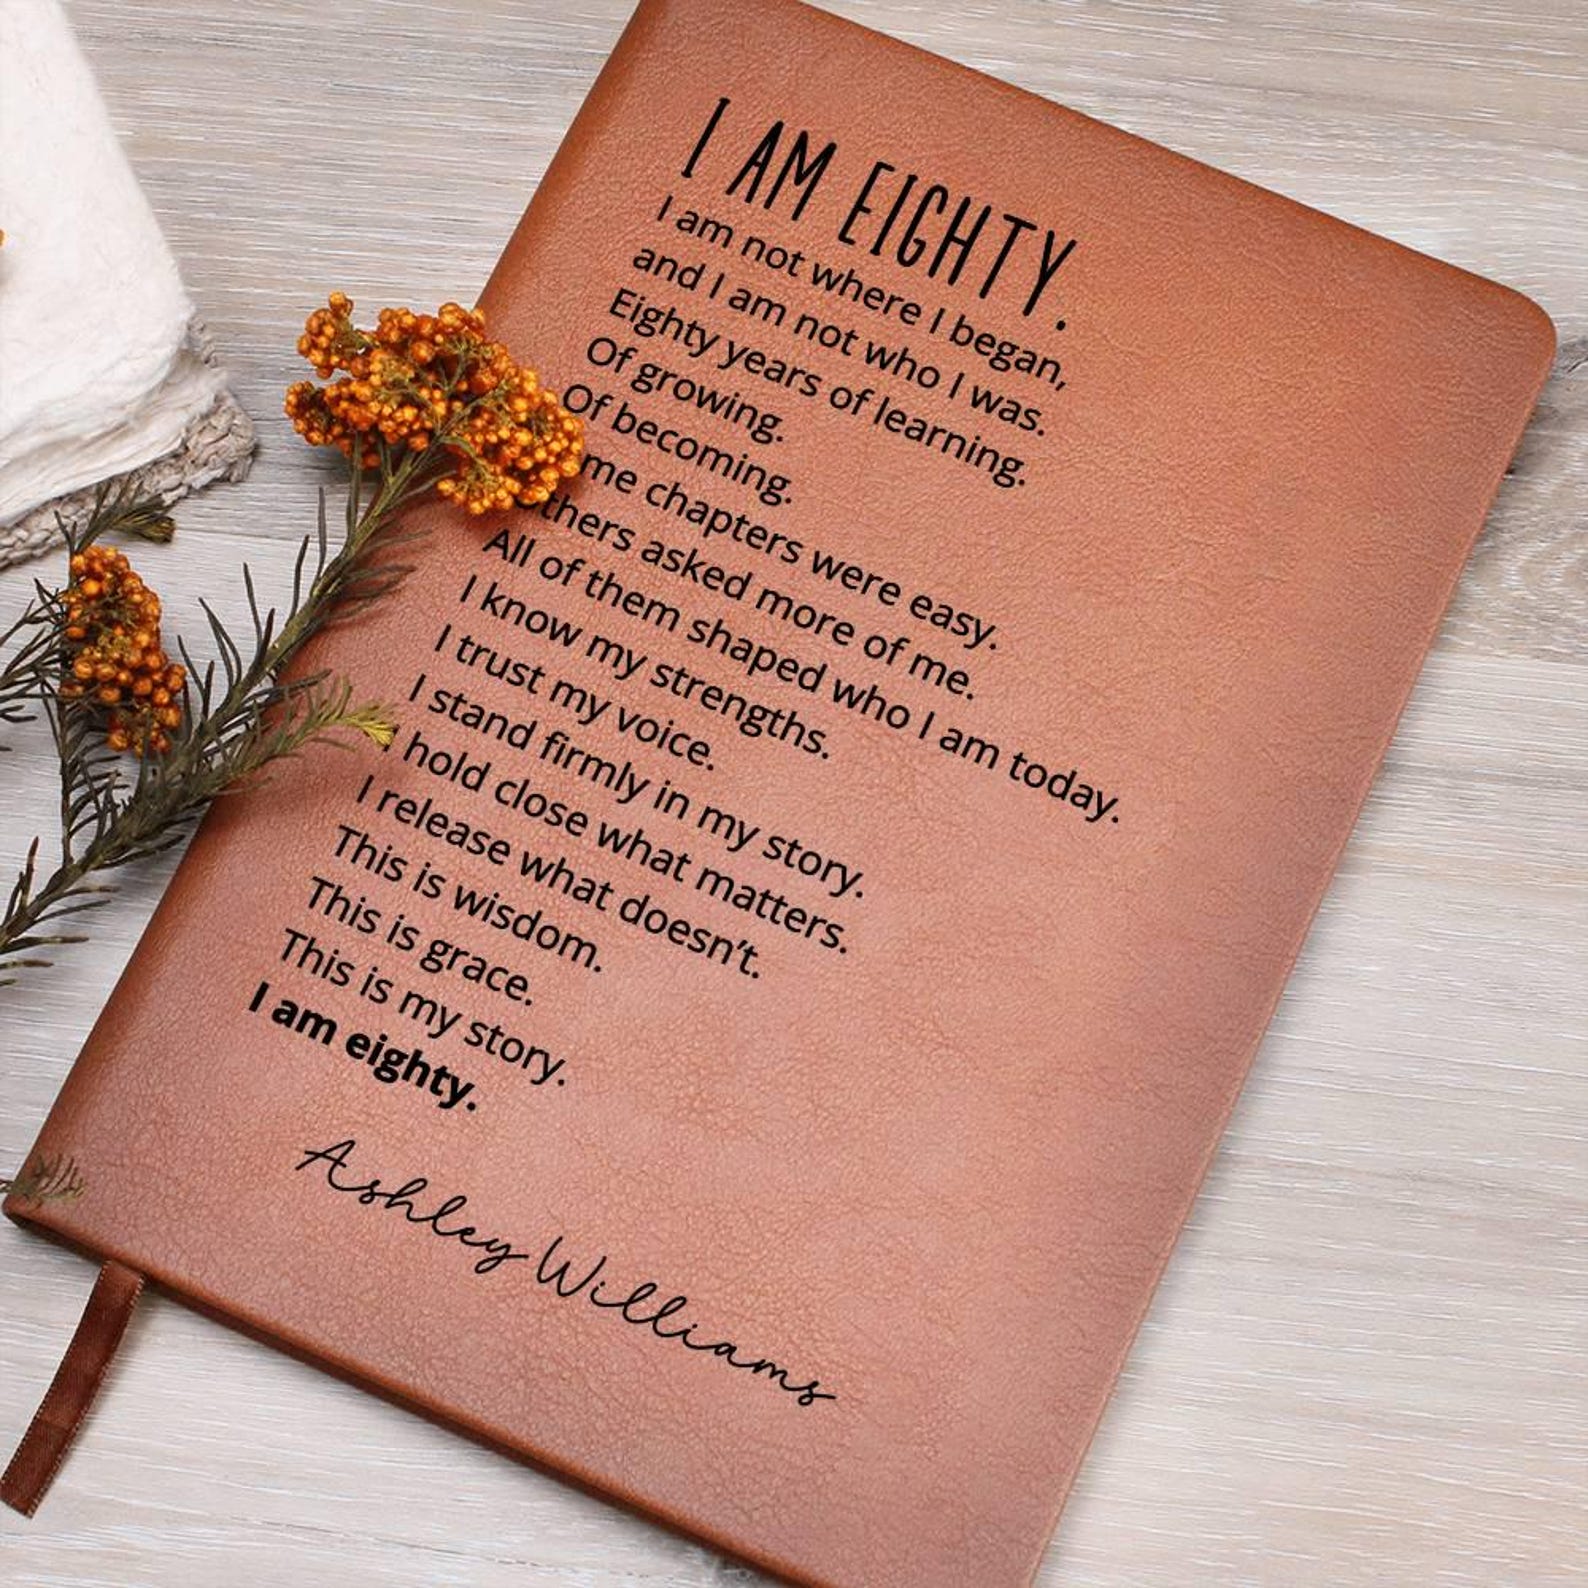 I AM EIGHTY.
I am not where I began,
and I am not who I was.
Eighty years of learning.
Of growing.
Of becoming.
me chapters were easy.
Others asked more of me.
All of them shaped who I am today.
I know my strengths.
I trust my voice.
I stand firmly in my story.
I hold close what matters.
I release what doesn't.
This is wisdom.
This is grace.
This is my story.
I am eighty.
Ashley Williams